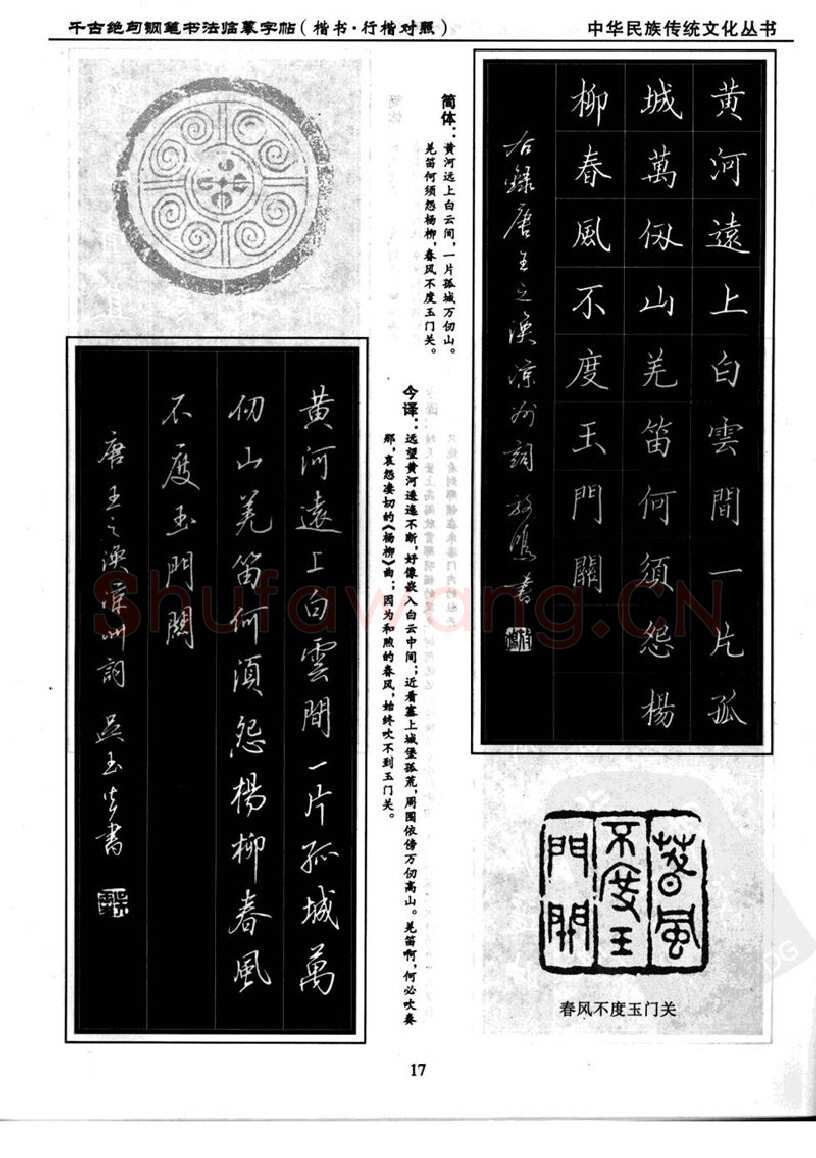 千古绝句钢笔书法临摹字帖(楷书·行楷对照)
中华民族传统文化丛书
黄河遠上白雲間一片孤
城萬仞山羌笛何須怨楊
柳春風不度玉門關
右録唐王之渙凉州詞
書
简体：黄河远上白云间，一片孤城万仞山。
羌笛何须怨杨柳，春风不度玉门关。
今译：远望黄河迤逶不断，好像嵌入白云中间；近看塞上城堡孤荒，周围依傍万仞高山。羌笛啊，何必吹奏
那，哀怨凄切的《杨柳》曲；因为和煦的春风，始终吹不到玉门关。
黄河遠上白雲間一片孤城萬
仞山羌笛何須怨楊柳春風
不度玉門關
唐王之渙凉州詞 吴玉生書
春風
不度玉
門關
春风不度玉门关
Shufawang.CN
17